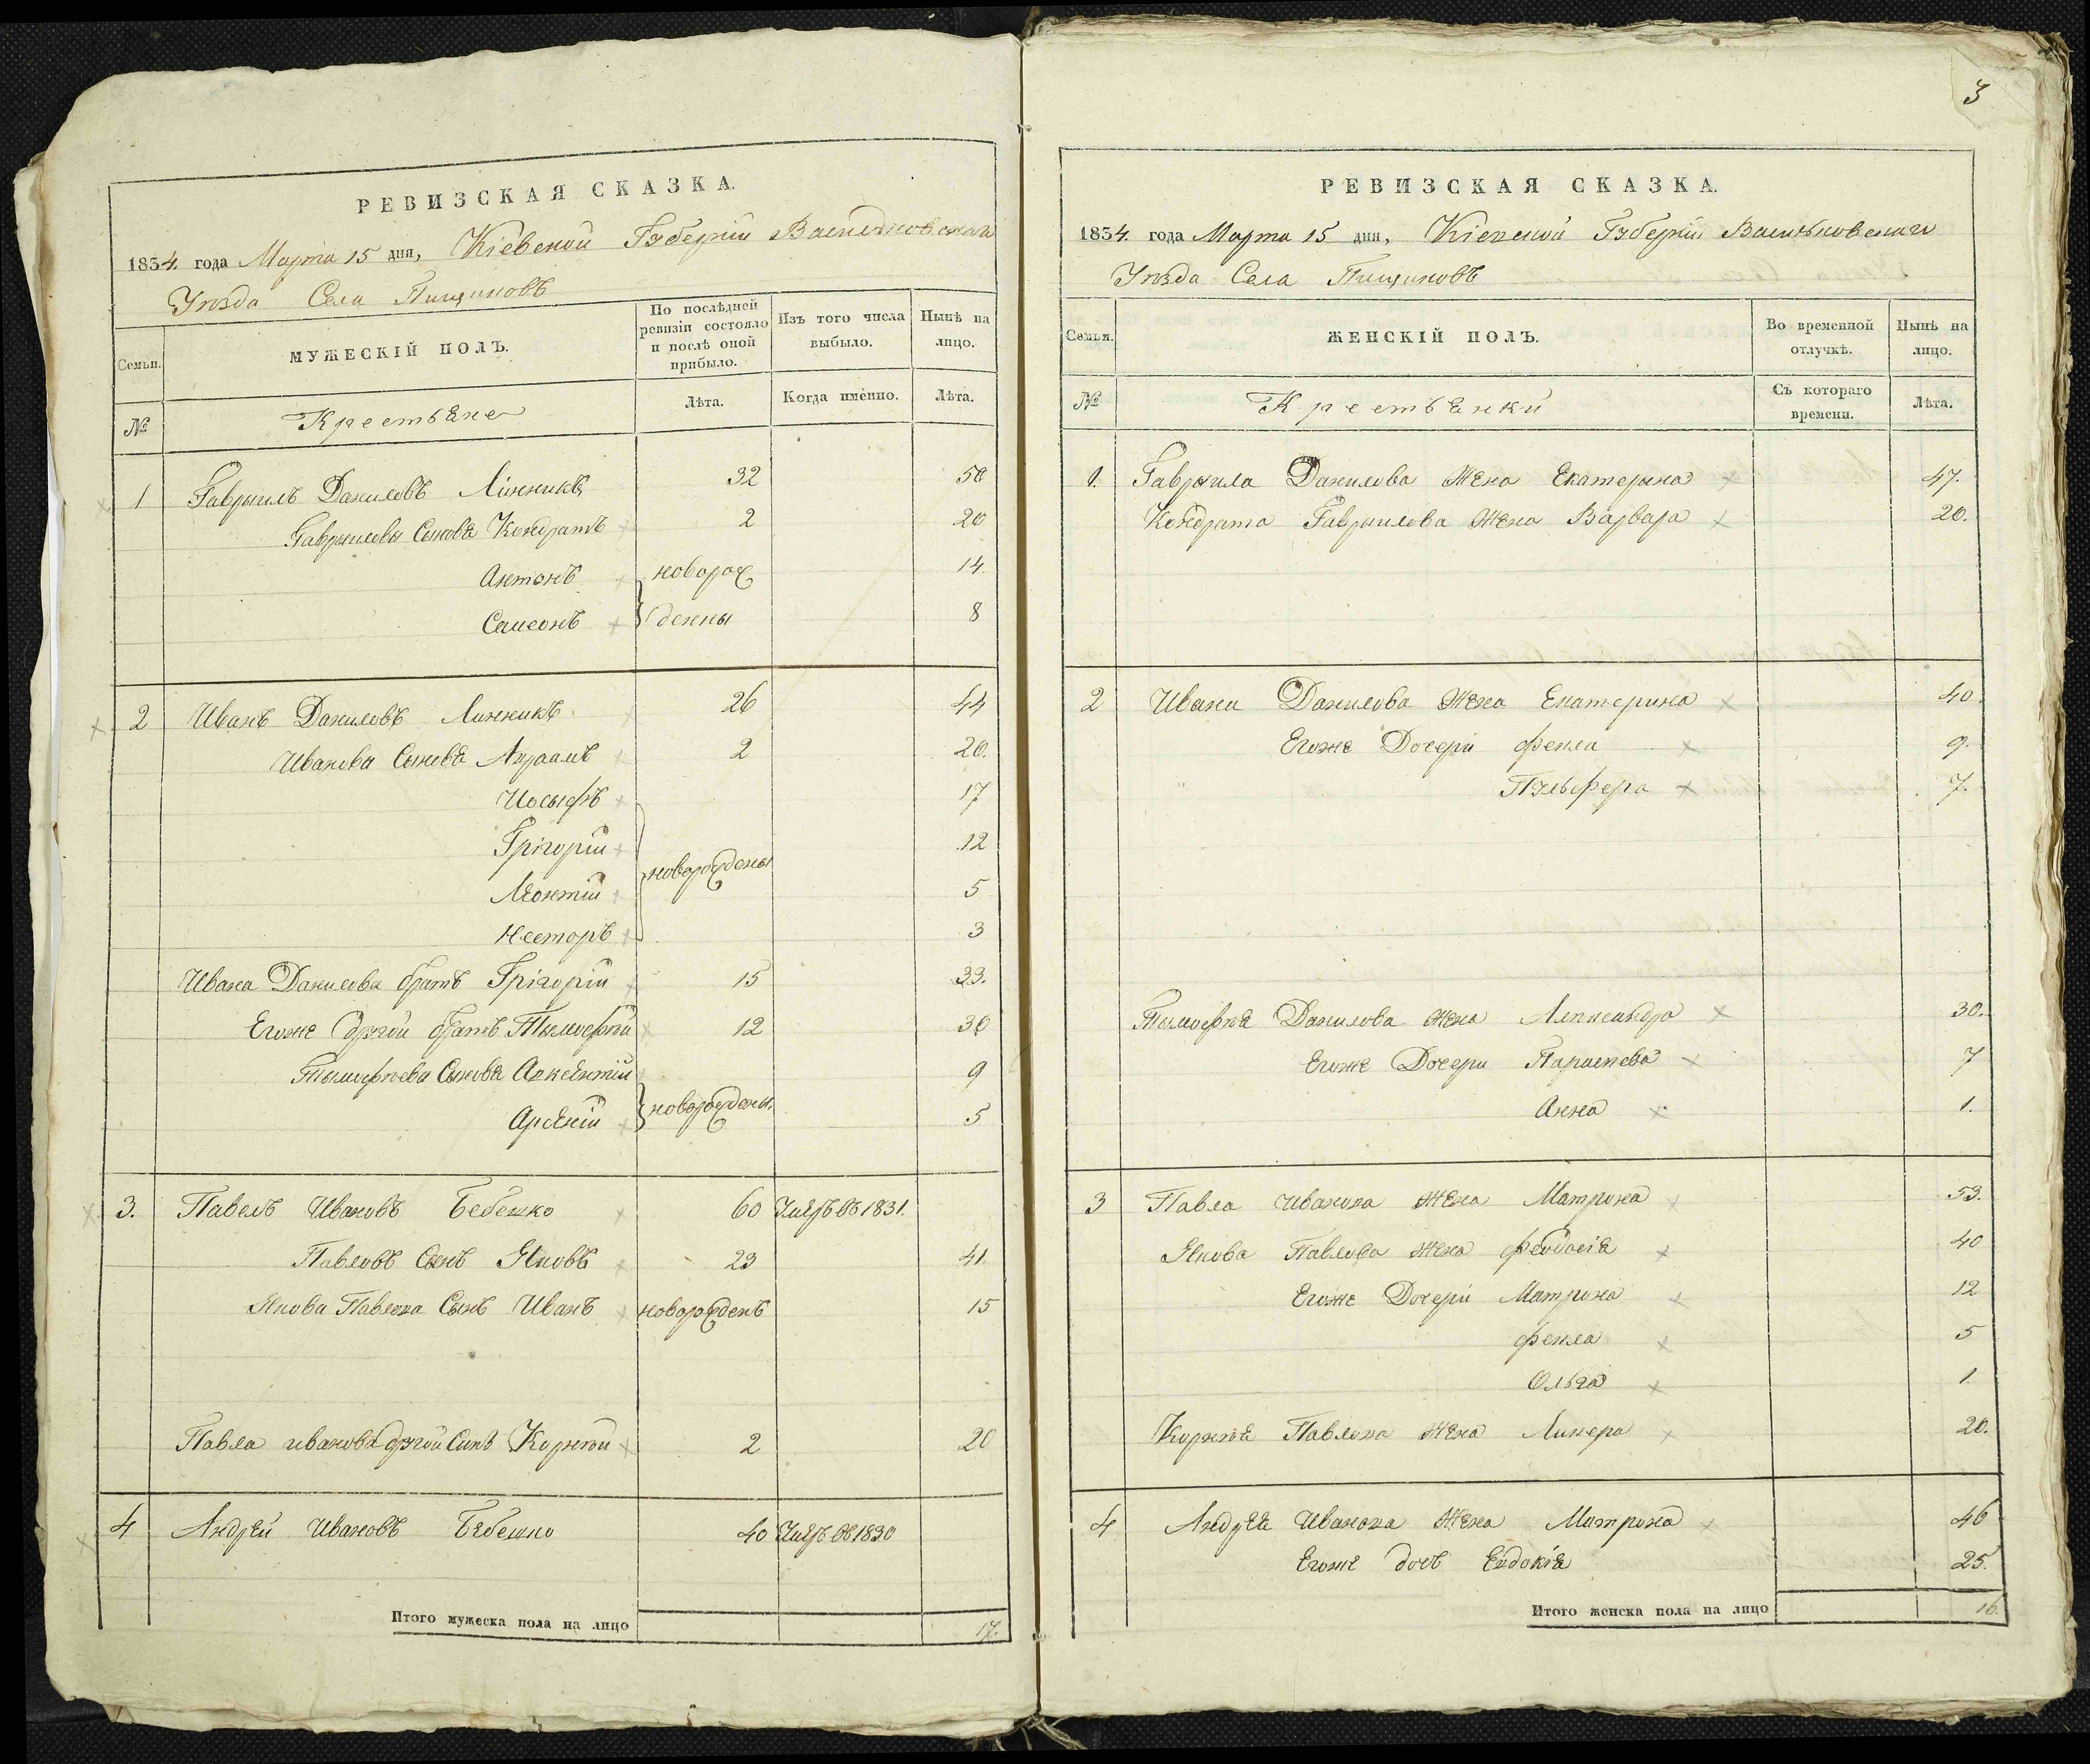 РЕВИЗСКАЯ СКАЗКА.
1834. года Марта 15 дня, Кіевской Губерніи Васильковскаго
Уѣзда Села Пищиковъ
Семьи.
МУЖЕСКІЙ ПОЛЪ.
По послѣдней ревизіи состояло и послѣ оной прибыло.
Изъ того числа выбыло.
Нынѣ на лицо.
№
Крестьяне
Лѣта.
Когда именно.
Лѣта.
1 Гаврыилъ Даниловъ Линникъ 32 50
Гаврыиловы Сыновя Кондратъ 2 20
Антонъ новорож 14.
Самсонъ денны 8
2 Иванъ Даниловъ Линникъ 26 44
Иванова Сыновя Авраамъ 2 20.
Иосыфъ 17
Грігорій 12
Леонтій новорождены 5
Несторъ 3
Ивана Данилова братъ Грігорій 15 33.
Егоже другой братъ Тымофтій 12 30
Тымофѣева Сыновя Авксентій 9
Арсеній новорождены. 5
3. Павелъ Ивановъ Бебешко 60 Умеръ въ 1831.
Павловъ Сынъ Яковъ 23 41.
Якова Павлова Сынъ Иванъ новорожденъ 15
Павла иванова другой Сынъ Корнѣй 2 20
4 Андрей Ивановъ Бебешко 40 Умеръ въ 1830
Итого мужеска пола на лицо 17.
3
РЕВИЗСКАЯ СКАЗКА.
1834. года Марта 15 дня, Кіевской Губерніи Васильковскаго
Уѣзда Села Пищиковъ
Семьи.
ЖЕНСКІЙ ПОЛЪ.
Во временной отлучкѣ.
Нынѣ на лицо.
№
Крестьянки
Съ котораго времени.
Лѣта.
1. Гаврыила Данилова жена Екатерына 47.
Кондрата Гаврыилова жена Варвара 20.
2 Ивана Данилова жена Екатерина 40.
Егоже Дочери фекла 9.
Пульфера 7.
Тымофѣя Данилова жена Александра 30.
Егоже Дочери Параскева 7
Анна 1.
3 Павла Иванова жена Матрона 53.
Якова Павлова жена феодосія 40
Егоже Дочери Матрона 12
фекла 5
Ольга 1.
Корнѣя Павлова жена Ликера 20.
4 Андрея Иванова жена Матрона 46
Егоже дочь Евдокія 25.
Итого женска пола на лицо 16.